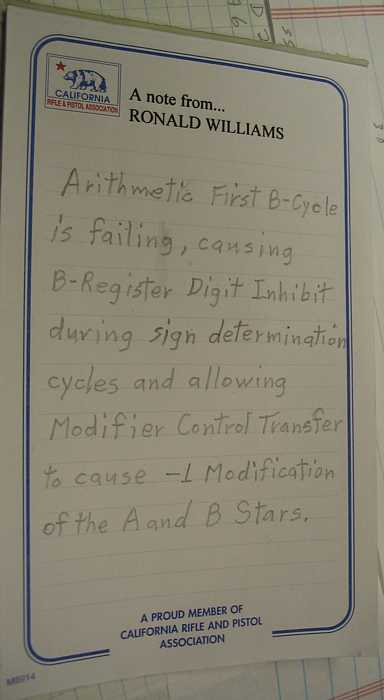 CALIFORNIA
RIFLE & PISTOL ASSOCIATION
A note from...
RONALD WILLIAMS
Arithmetic First B-Cycle
is failing, causing
B-Register Digit Inhibit
during sign determination
cycles and allowing
Modifier Control Transfer
to cause -1 Modification
of the A and B Stars.
A PROUD MEMBER OF
CALIFORNIA RIFLE AND PISTOL
ASSOCIATION